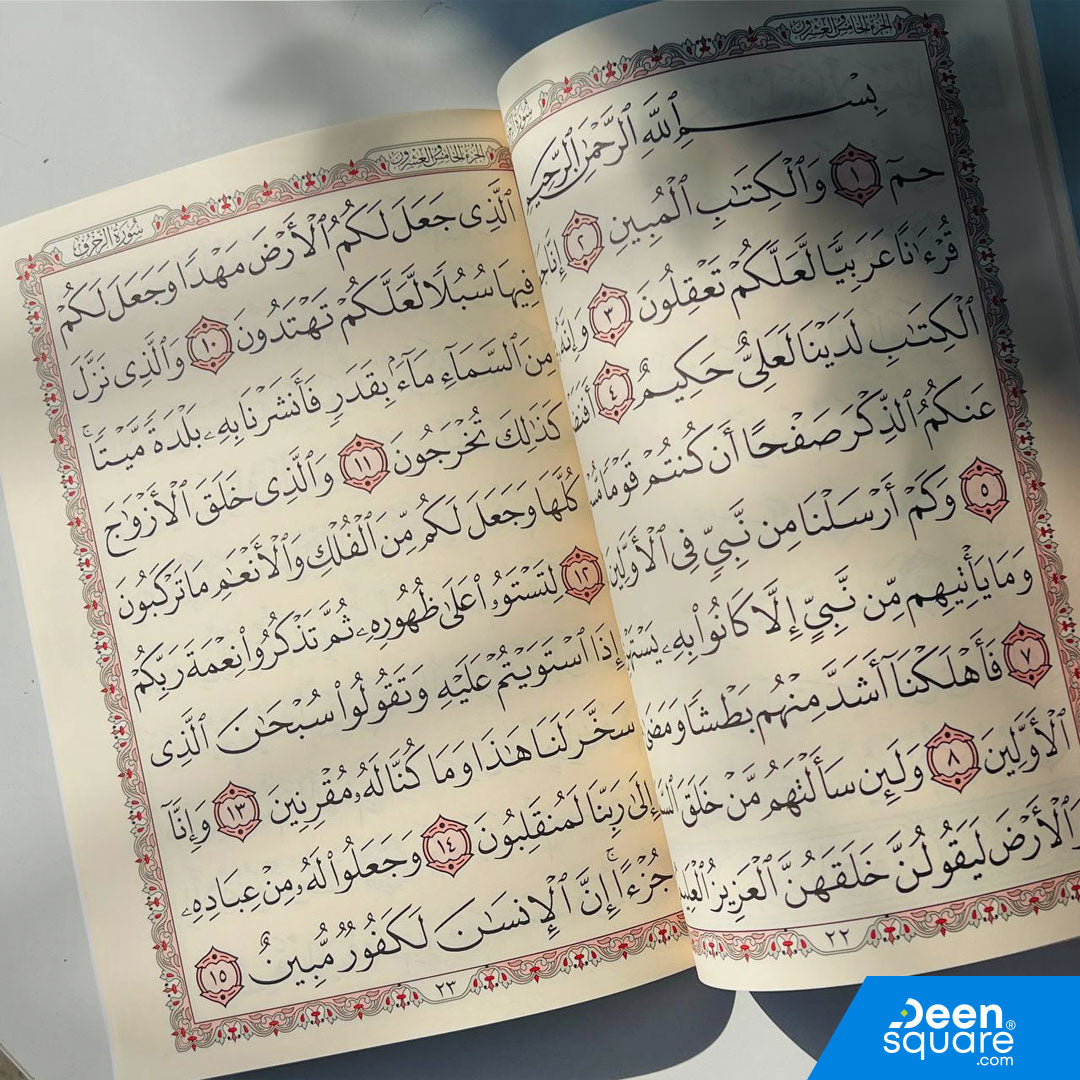 الجزء الخامس والعشرون
بِسْمِ ٱللَّهِ ٱلرَّحْمَٰنِ ٱلرَّحِيمِ
حمٓ ١ وَٱلْكِتَٰبِ ٱلْمُبِينِ ٢
قُرْءَٰنًا عَرَبِيًّا لَّعَلَّكُمْ تَعْقِلُونَ ٣
ٱلْكِتَٰبِ لَدَيْنَا لَعَلِىٌّ حَكِيمٌ ٤
عَنكُمُ ٱلذِّكْرَ صَفْحًا أَن كُنتُمْ قَوْمًا
٥ وَكَمْ أَرْسَلْنَا مِن نَّبِىٍّ فِى ٱلْأَوَّلِينَ
وَمَا يَأْتِيهِم مِّن نَّبِىٍّ إِلَّا كَانُوا۟ بِهِۦ
٧ فَأَهْلَكْنَآ أَشَدَّ مِنْهُم بَطْشًا وَمَضَىٰ
ٱلْأَوَّلِينَ ٨ وَلَئِن سَأَلْتَهُم مَّنْ خَلَقَ
وَٱلْأَرْضَ لَيَقُولُنَّ خَلَقَهُنَّ ٱلْعَزِيزُ
٢٢
الجزء الخامس والعشرون
سورة الزخرف
ٱلَّذِى جَعَلَ لَكُمُ ٱلْأَرْضَ مَهْدًا وَجَعَلَ لَكُمْ
فِيهَا سُبُلًا لَّعَلَّكُمْ تَهْتَدُونَ ١٠ وَٱلَّذِى نَزَّلَ
مِنَ ٱلسَّمَآءِ مَآءًۢ بِقَدَرٍ فَأَنشَرْنَا بِهِۦ بَلْدَةً مَّيْتًا ۚ
كَذَٰلِكَ تُخْرَجُونَ ١١ وَٱلَّذِى خَلَقَ ٱلْأَزْوَٰجَ
كُلَّهَا وَجَعَلَ لَكُم مِّنَ ٱلْفُلْكِ وَٱلْأَنْعَٰمِ مَا تَرْكَبُونَ
١٢ لِتَسْتَوُۥا۟ عَلَىٰ ظُهُورِهِۦ ثُمَّ تَذْكُرُوا۟ نِعْمَةَ رَبِّكُمْ
إِذَا ٱسْتَوَيْتُمْ عَلَيْهِ وَتَقُولُوا۟ سُبْحَٰنَ ٱلَّذِى
سَخَّرَ لَنَا هَٰذَا وَمَا كُنَّا لَهُۥ مُقْرِنِينَ ١٣ وَإِنَّآ
إِلَىٰ رَبِّنَا لَمُنقَلِبُونَ ١٤ وَجَعَلُوا۟ لَهُۥ مِنْ عِبَادِهِۦ
جُزْءًا ۚ إِنَّ ٱلْإِنسَٰنَ لَكَفُورٌ مُّبِينٌ ١٥
٢٣
Deen
square®
.com